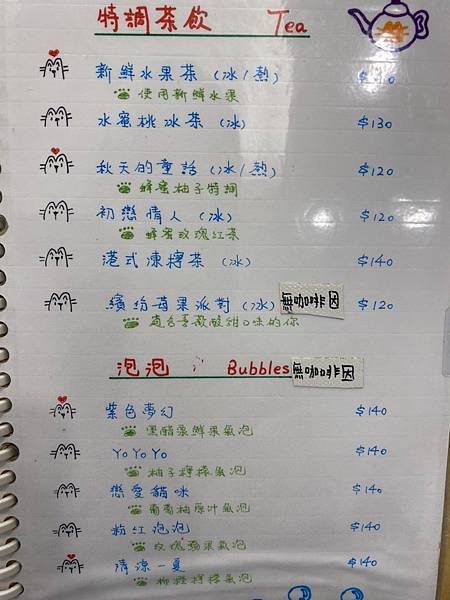 特調茶飲 Tea
新鮮水果茶 (冰/熱)
使用新鮮水果
水蜜桃冰茶 (冰) $130
秋天的童話 (冰/熱) $120
蜂蜜柚子特調
初戀情人 (冰) $120
蜂蜜玫瑰紅茶
港式凍檸茶 (冰) $140
繽紛莓果派對 (冰) 無咖啡因 $120
適合喜歡酸甜口味的你
泡泡 Bubbles 無咖啡因
紫色夢幻 $140
黑醋栗鮮果氣泡
YoYoYo $140
柚子檸檬氣泡
戀愛貓咪 $140
葡萄柚原汁氣泡
粉紅泡泡 $140
玫瑰蘋果氣泡
清涼一夏 $140
柳橙檸檬氣泡